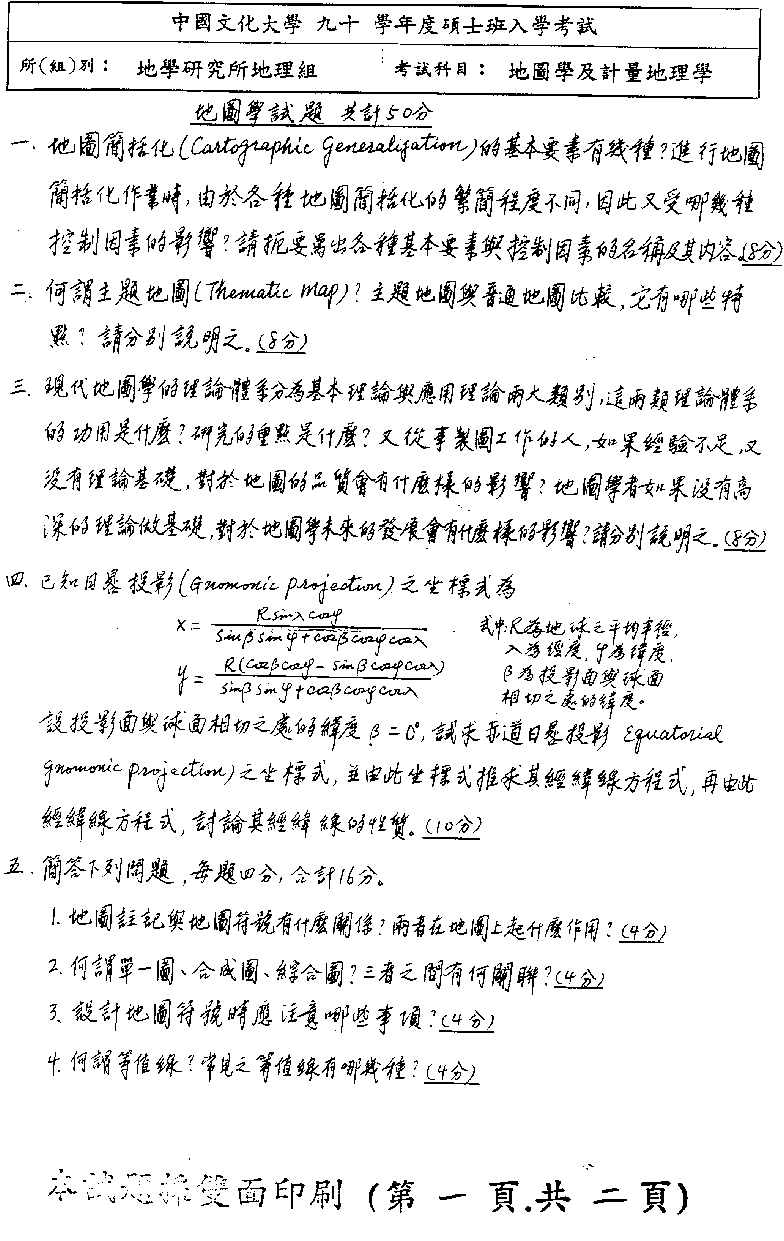 中國文化大學 九十 學年度碩士班入學考試
所(組)別： 地學研究所地理組 考試科目： 地圖學及計量地理學
地圖學試題 共計50分
一. 地圖簡括化(Cartographic Generalization)的基本要素有幾種?進行地圖
簡括化作業時,由於各種地圖簡括化的繁簡程度不同,因此又受哪幾種
控制因素的影響?請扼要寫出各種基本要素與控制因素的名稱及其內容。(8分)
二. 何謂主題地圖(Thematic map)? 主題地圖與普通地圖比較,它有哪些特
點? 請分別說明之。(8分)
三. 現代地圖學的理論體系分為基本理論與應用理論兩大類別,這兩類理論體系
的功用是什麼?研究的重點是什麼?又從事製圖工作的人,如果經驗不足,又
沒有理論基礎,對於地圖的品質會有什麼樣的影響?地圖學者如果沒有高
深的理論做基礎,對於地圖學未來的發展會有什麼樣的影響?請分別說明之。(8分)
四. 已知日晷投影(Gnomonic projection)之坐標式為
x = R sinλ cosφ / sinβ sinφ + cosβ cosφ cosλ
y = R(cosβ cosφ - sinβ cosφ cosλ) / sinβ sinφ + cosβ cosφ cosλ
式中:R為地球之平均半徑,
λ為經度,φ為緯度,
β為投影面與球面
相切之處的緯度。
設投影面與球面相切之處的緯度β=0°,試求赤道日晷投影 Equatorial
gnomonic projection)之坐標式,並由此坐標式推求其經緯線方程式,再由此
經緯線方程式,討論其經緯線的性質。(10分)
五. 簡答下列問題,每題四分,合計16分。
1. 地圖註記與地圖符號有什麼關係?兩者在地圖上起什麼作用?(4分)
2. 何謂單一圖、合成圖、綜合圖?三者之間有何關聯?(4分)
3. 設計地圖符號時應注意哪些事項?(4分)
4. 何謂等值線?常見之等值線有哪幾種?(4分)
本試題採雙面印刷 (第 一 頁.共 二 頁)